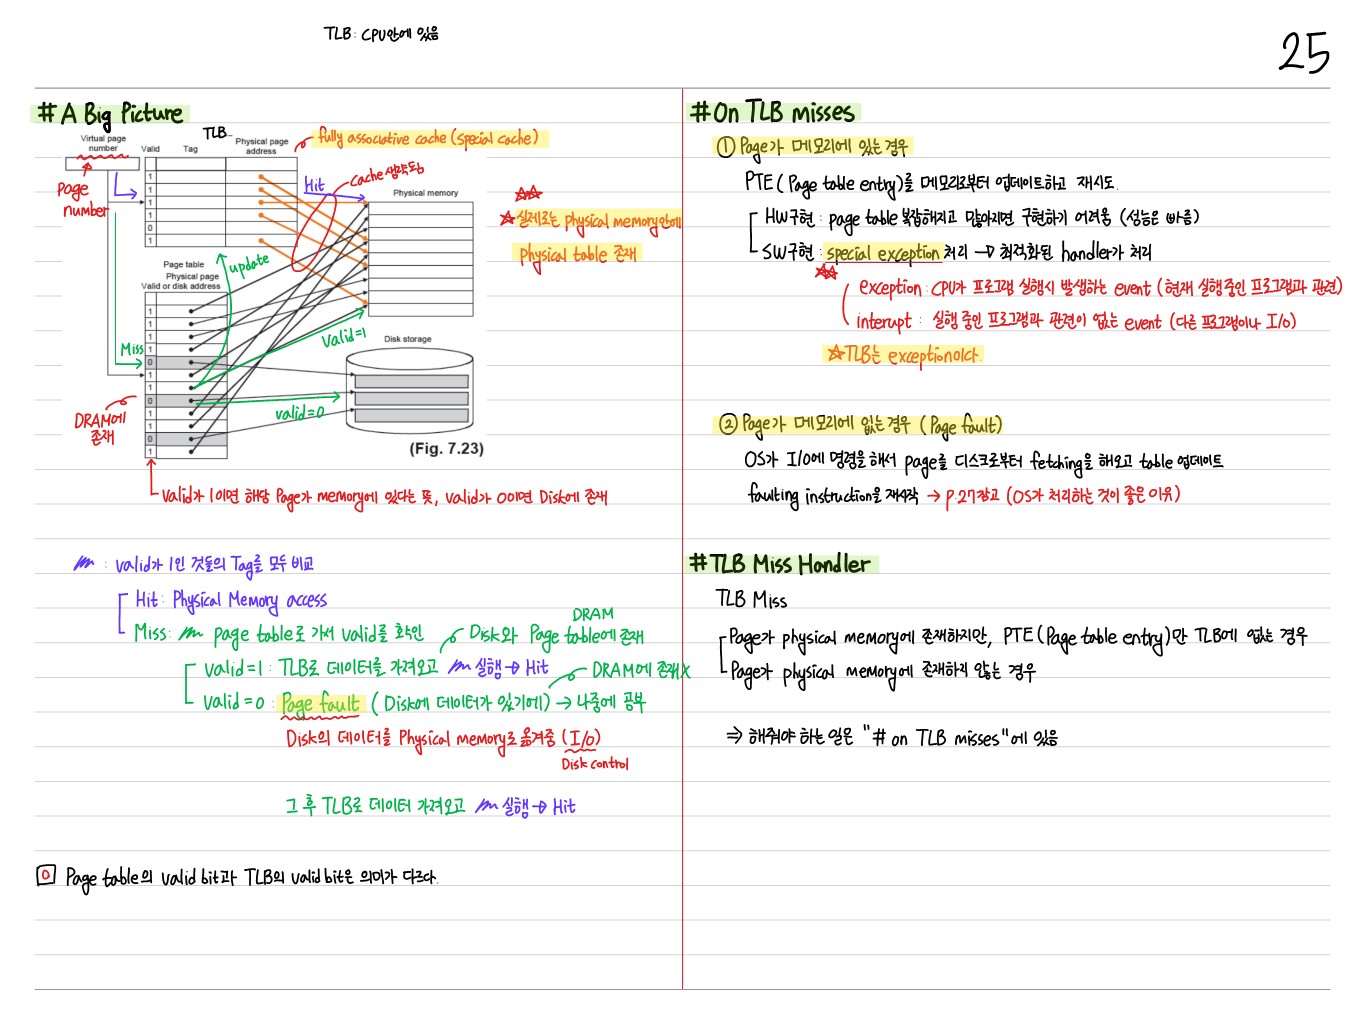 TLB : CPU안에 있음
25
# A Big Picture
TLB
Virtual page number
Valid
Tag
Physical page address
fully associative cache (special cache)
Page number
Hit
Cache 생략됨
Physical memory
☆☆
☆실제로는 physical memory안에
physical table 존재
update
Page table
Physical page
Valid or disk address
1
1
1
1
0
1
1
1
1
1
0
1
1
0
1
1
0
1
Miss
Valid=1
Disk storage
valid=0
DRAM에 존재
(Fig. 7.23)
Valid가 1이면 해당 Page가 memory에 있다는 뜻, valid가 0이면 Disk에 존재
: valid가 1인 것들의 Tag를 모두 비교
Hit : Physical Memory access
DRAM
Miss : page table로 가서 valid를 확인
Disk와 Page table에 존재
valid=1 : TLB로 데이터를 가져오고 실행 → Hit
DRAM에 존재X
valid=0 : Page fault (Disk에 데이터가 있기에) → 나중에 공부
Disk의 데이터를 Physical memory로 옮겨줌 (I/O)
Disk control
그 후 TLB로 데이터 가져오고 실행 → Hit
0 Page table의 valid bit과 TLB의 valid bit은 의미가 다르다.
# On TLB misses
① Page가 메모리에 있는 경우
PTE (Page table entry)를 메모리로부터 업데이트하고 재시도.
HW구현 : page table 복잡해지고 많아지면 구현하기 어려움 (성능은 빠름)
SW구현 : special exception 처리 → 최적화된 handler가 처리
☆☆
exception : CPU가 프로그램 실행시 발생하는 event (현재 실행 중인 프로그램과 관련)
interupt : 실행 중인 프로그램과 관련이 없는 event (다른 프로그램이나 I/O)
☆TLB는 exception이다.
② Page가 메모리에 없는 경우 (Page fault)
OS가 I/O에 명령을 해서 page를 디스크로부터 fetching을 해오고 table 업데이트
faulting instruction을 재시작 → p.27참고 (OS가 처리하는 것이 좋은 이유)
# TLB Miss Handler
TLB Miss
Page가 physical memory에 존재하지만, PTE (Page table entry)만 TLB에 없는 경우
Page가 physical memory에 존재하지 않는 경우
⇒ 해줘야 하는 일은 "# on TLB misses"에 있음